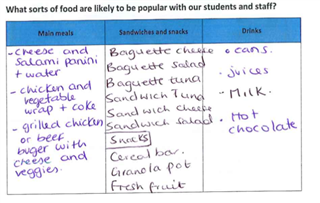 What sorts of food are likely to be popular with our students and staff?
Main meals
Sandwiches and snacks
Drinks
- cheese and
salami panini
+ water
- chicken and
vegetable
wrap + coke
- grilled chicken
or beef
buger with
cheese and
veggies.
Baguette cheese
Baguette salad
Baguette tuna
Sandwich Tuna
Sandwich cheese
Sandwich salad
Snacks
Cereal bar.
Granola pot
Fresh fruit
• cans.
• juices
- Milk.
• Hot
chocolate